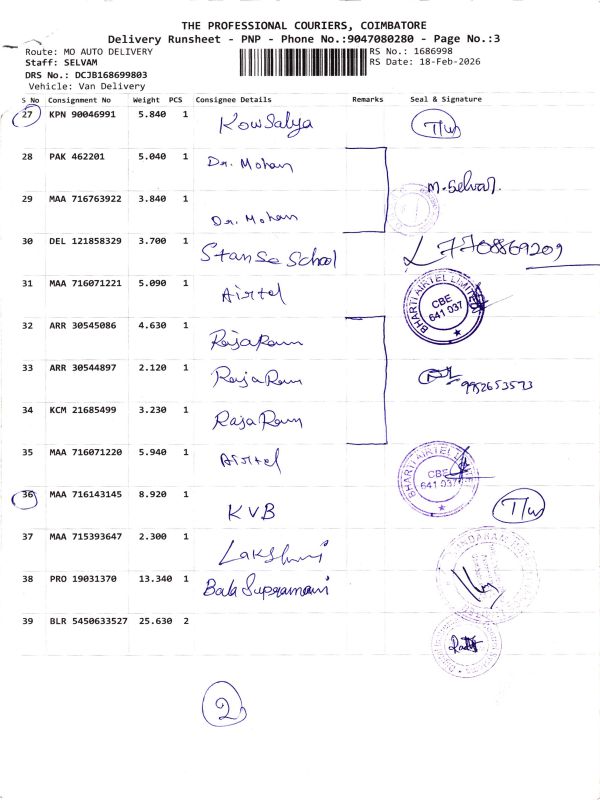 THE PROFESSIONAL COURIERS, COIMBATORE
Delivery Runsheet - PNP - Phone No.:9047080280 - Page No.:3
Route: MO AUTO DELIVERY RS No.: 1686998
Staff: SELVAM RS Date: 18-Feb-2026
DRS No.: DCJB168699803
Vehicle: Van Delivery
S No Consignment No Weight PCS Consignee Details Remarks Seal & Signature
27 KPN 90046991 5.840 1 Kowsalya T/w
28 PAK 462201 5.040 1 Dr. Mohan
M. Selvaj.
29 MAA 716763922 3.840 1 Dr. Mohan
30 DEL 121858329 3.700 1 Stanse School 7708869209
31 MAA 716071221 5.090 1 Airtel BHARTI AIRTEL LIMITED CBE 641 037
32 ARR 30545086 4.630 1 RajaRam
33 ARR 30544897 2.120 1 RajaRam 9952653573
34 KCM 21685499 3.230 1 RajaRam
35 MAA 716071220 5.940 1 Airtel BHARTI AIRTEL CBE 641 037
36 MAA 716143145 8.920 1 KVB T/w
37 MAA 715393647 2.300 1 Lakshmi
38 PRO 19031370 13.340 1 Bala Supramani
39 BLR 5450633527 25.630 2
2